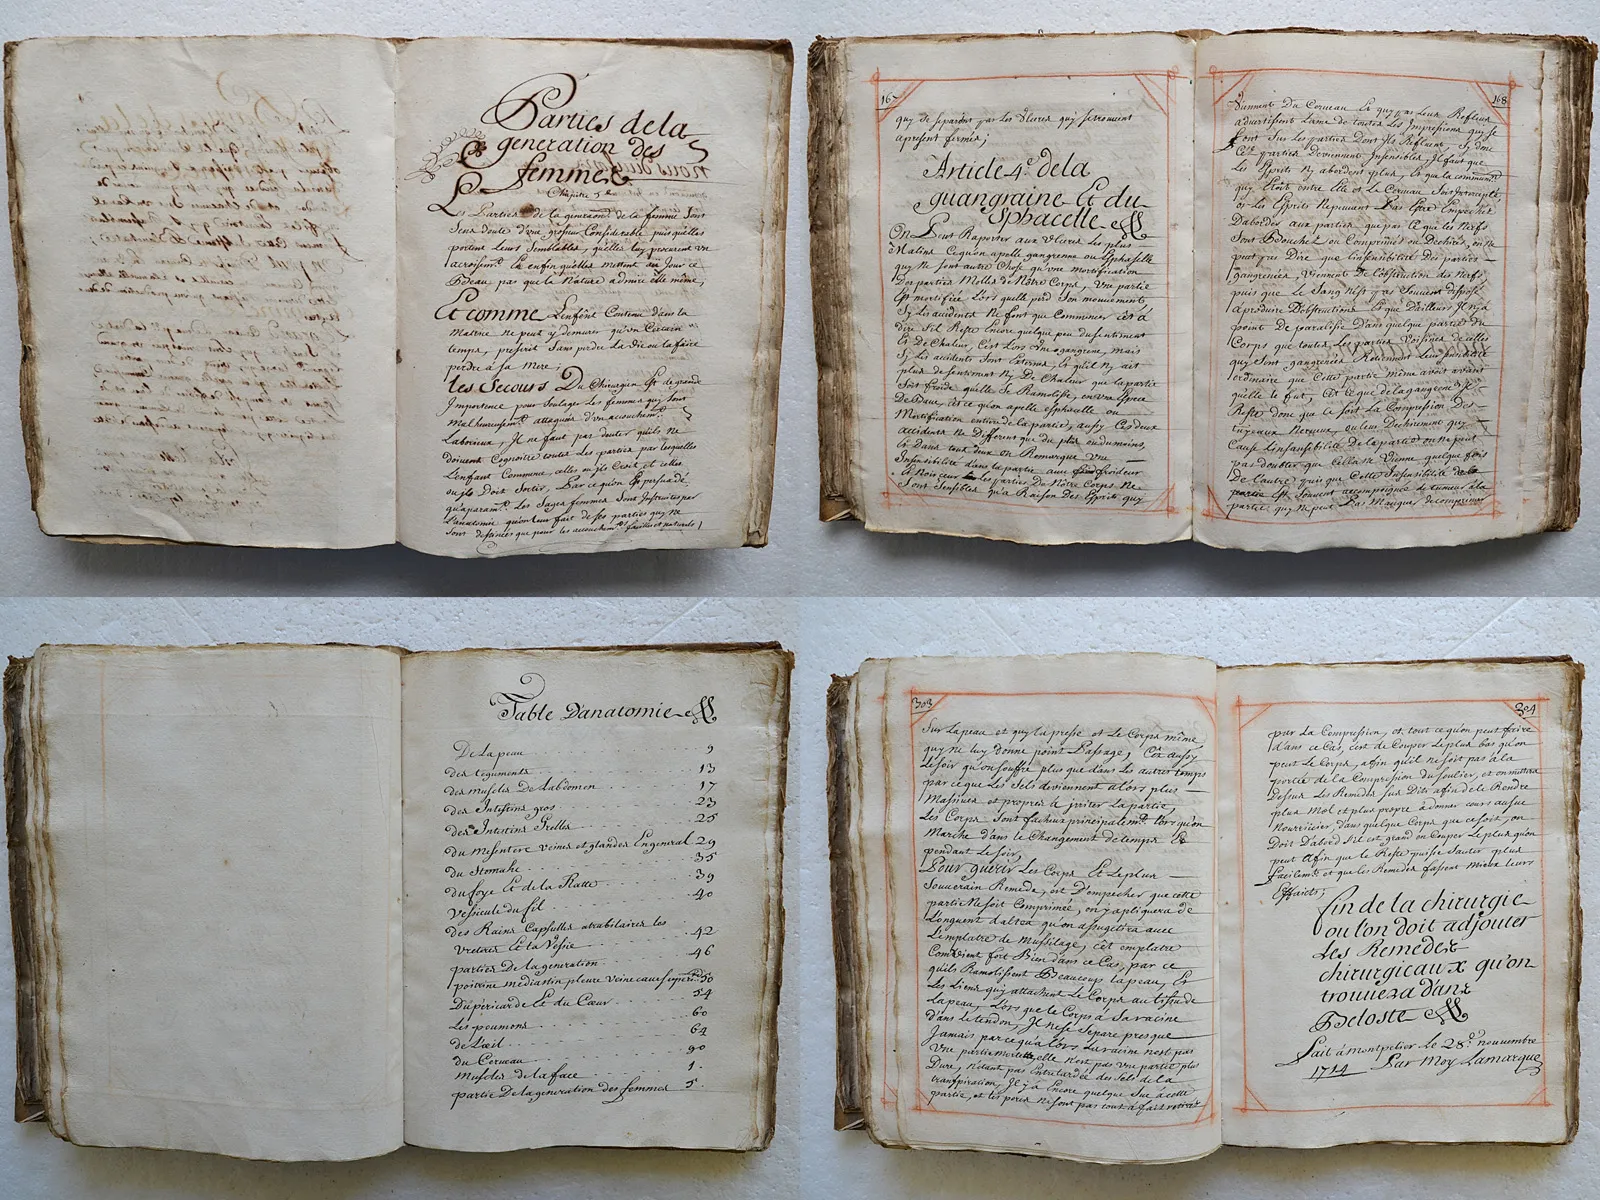 Parties de la
generation des
femmes
Chapitre 5e
Les Parties de la generaõn de la femme Sont
Sans doute d'une grosseur Considerable puis qu'elles
portent Leurs Semblables, qu'elles luy procurent un
acroissemt. Et enfin qu'elles mettent au Jour ce
Bdeau, pas que la Nature admire elle même,
Et comme L'enfant Contenu dans la
Matrice ne peut y demeurer qu'un Certain
temps, prescrit Sans perdre La Vie ou la faire
perdre à Sa Mere;
Les Secours Du Chirurgien Est de grande
Importence pour Soulager Les femmes qui Sont
Malheureusemt. attaquées d'un acouchemt.
Laborieux, Il ne faut pas douter qu'ils ne
doivent Cognoitre toutes Les parties par lesquelles
L'enfant Commence, celles ou ils Croit et celles
ou ils Doit Sortir, Par ce qu'on Est persuadé
qu'aparamt. Les Sages femmes Sont Instruites par
L'anatomie qu'on leur fait de ses parties qui ne
Sont destinées que pour les accouchemts. faciles et naturels
167
quy se separent par les Ulceres quy se trouvent
apresent fermés;
Article 4e de la
guangraine Et du
Sphacelle
On Peut Raporter aux Ulceres Les plus
Malins Ce qu'on apelle gangrenne ou Esphaselle
quy Ne sont autre Chose qu'une mortification
Des parties Molles de Nôtre Corps, Une partie
Est mortifiée Lors quelle perd Son mouvement,
Sy Les accidents Ne font que Commencer C'est à
dire s'il Reste Encore quelque peu du sentiment
Et De Chaleur, C'est Lors Une gangrene, mais
Sy Les accidents Sont Externes, Et qu'il N'y ait
plus de sentiment Ny De Chaleur que la partie
Soit froide qu'elle Se Ramolisse, en une Espece
De Peaue, c'est ce qu'on apelle Esphaselle ou
Mortification entiere de la partie, aussy Ces deux
accidents ne Different que du plus ou du moins,
Et Dans tous deux on Remarque Une
Insensibilité dans la partie avec froideur
Et Noirceur Les parties Du Nôtre Corps Ne
Sont Sensibles qu'a Raison Des Esprits quy
168
Viennent Du Cerveau Et quy par Leur Reflux
advertissent L'ame de toutes Les Impressions quy se
font Sur Les parties Dont ils Refluent, Sy donc
Ces parties Deviennent Insensibles, Il faut que
Les Esprits N'y abordent plus, Et que la communicaõn
quy Etoit entre Elle et Le Cerveau Soit Interrompue
or Les Esprits Ne peuvent Pas Etre Empechés
D'aborder aux parties que par Ce que les Nerfs
Sont Bouchez ou Comprimés ou Dechirés, on ne
peut pas Dire que L'insensibilité Des parties
gangrenées, Viennent De L'obstruction des Nerfs,
puis que Le Sang N'est pas Souvent disposé
a produire D'obstructions Et que D'ailleurs Il n'y a
point de paralisie Dans quelque partie du
Corps que toutes Les parties Voisines de celles
quy Sont gangrenées Retiennent Leur Sensibilité
ordinaire que Cette partie même avoit avant
quelle le fut, C'est ce que de la gangrene Il
Reste donc que ce soit La Compression Des
tuyeaux Nerveux, ou leur Dechirement quy
Cause L'insensibilité De la partie ou Ne peut
pas doubter que Cella ne Vienne quelque fois
De L'autre puis que Cette Insensibilité de la
partie Est Souvent accompagnée de tumeur à la
partie quy ne peut Pas Manquer De comprimer
Table D'anatomie
De La peau 9
des teguments 13
des muscles De L'abdomen 17
des Intestins gros 23
des Intestins Grelles 25
du Mesentere veines et glandes En general 29
du Stomahc 35
du foye Et de la Ratte 39
Vessicule du fil 40
des Rains Capsulles atrabilaires les
Uretres Et la Vessie 42
parties De la generation 46
poitrine mediastin pleure veine cave superre. 50
Du pericarde Et du Cœur 54
Les poumons 60
de L'œil 64
du Cerveau 90
Muscles de la face 1
partie De la generation des femmes 5
303
Sur La peau et quy la presse et Le Corps même
quy ne luy donne point Passage, C'est aussy
Le Soir qu'on souffre plus que dans Les autres temps
par ce que Les Sels deviennent alors plus
Massives et propres à jrriter La partie,
Les Corps Sont facheux principalemt. lors qu'on
Marche dans le Changement de temps Et
pendant Le Soir,
Pour guerir Les Corps Et Le plus
Souverain Remede, est D'empecher que cette
partie Ne soit Comprimée, on y apliquera de
L'onguent d'altea qu'on assugetira avec
L'emplatre de Mussilage, cet emplatre
Convient fort Bien dans ce Cas, par ce
qu'ils Ramolissent Beaucoup La peau, Et
Les Liens quy attachent Le Corps au tissu de
La peau, Lors que Le Corps à Sa racine
dans le tendon, Il ne se Separe presque
Jamais par ce qu'a Lors La racine n'est pas
Une partie morte, elle N'est pas Une partie plus
Dure, n'étant pas Entretardée des Sels de la
transpiration, Il y à Encore quelque Suc à cette
partie, et les pores Ne sont pas tout à fait retirés
304
par La Compression, et tout ce qu'on peut faire
dans ce Cas, c'est de Couper Le plus bas qu'on
peut Le Corps, afin qu'il ne soit pas à la
portée de la Compression du soulier, et on mettra
Dessus Les Remedes Sus Dits afin de Le Rendre
plus Mol et plus propre à donner cours au suc
Nourricier, dans quelque Corps que ce soit, on
Doit D'abord S'il est grand en Couper Le plus qu'on
peut Afin que Le Reste puisse Sauter plus
facilemt. et que les Remedes fassent Mieux leurs
Effaits;
fin de la chirurgie
ou l'on doit adjouter
les Remedes
chirurgicaux qu'on
trouvera dans
Beloste
Fait à montpelier Le 28e. nouvembre
1714 Par Moy Lamarque